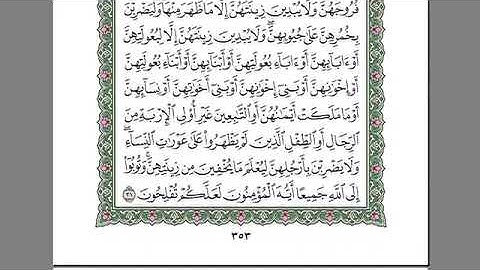 فُرُوجَهُنَّ وَلَا يُبْدِينَ زِينَتَهُنَّ إِلَّا مَا ظَهَرَ مِنْهَا وَلْيَضْرِبْنَ
بِخُمُرِهِنَّ عَلَىٰ جُيُوبِهِنَّ ۖ وَلَا يُبْدِينَ زِينَتَهُنَّ إِلَّا لِبُعُولَتِهِنَّ
أَوْ ءَابَآئِهِنَّ أَوْ ءَابَآءِ بُعُولَتِهِنَّ أَوْ أَبْنَآئِهِنَّ أَوْ أَبْنَآءِ بُعُولَتِهِنَّ
أَوْ إِخْوَٰنِهِنَّ أَوْ بَنِىٓ إِخْوَٰنِهِنَّ أَوْ بَنِىٓ أَخَوَٰتِهِنَّ أَوْ نِسَآئِهِنَّ
أَوْ مَا مَلَكَتْ أَيْمَٰنُهُنَّ أَوِ ٱلتَّٰبِعِينَ غَيْرِ أُو۟لِى ٱلْإِرْبَةِ مِنَ
ٱلرِّجَالِ أَوِ ٱلطِّفْلِ ٱلَّذِينَ لَمْ يَظْهَرُوا۟ عَلَىٰ عَوْرَٰتِ ٱلنِّسَآءِ ۖ
وَلَا يَضْرِبْنَ بِأَرْجُلِهِنَّ لِيُعْلَمَ مَا يُخْفِينَ مِن زِينَتِهِنَّ ۚ وَتُوبُوٓا۟
إِلَى ٱللَّهِ جَمِيعًا أَيُّهَ ٱلْمُؤْمِنُونَ لَعَلَّكُمْ تُفْلِحُونَ ٣١
٣٥٣